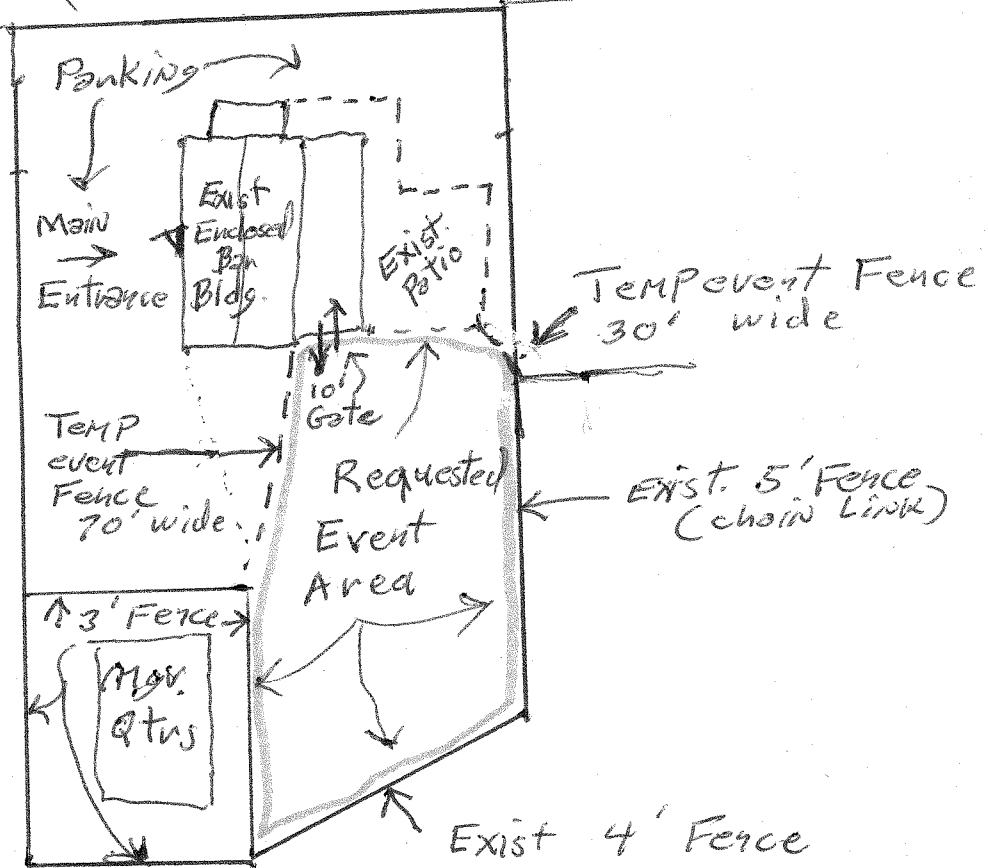 Parking
Main
Entrance
Exist
Enclosed
Bar
Bldg.
Exist.
Patio
Temp event Fence
30' wide
10'
Gate
Temp
event
Fence
70' wide
Requested
Event
Area
Exist. 5' Fence
(chain Link)
3' Fence
Mgr.
Qtrs
Exist 4' Fence